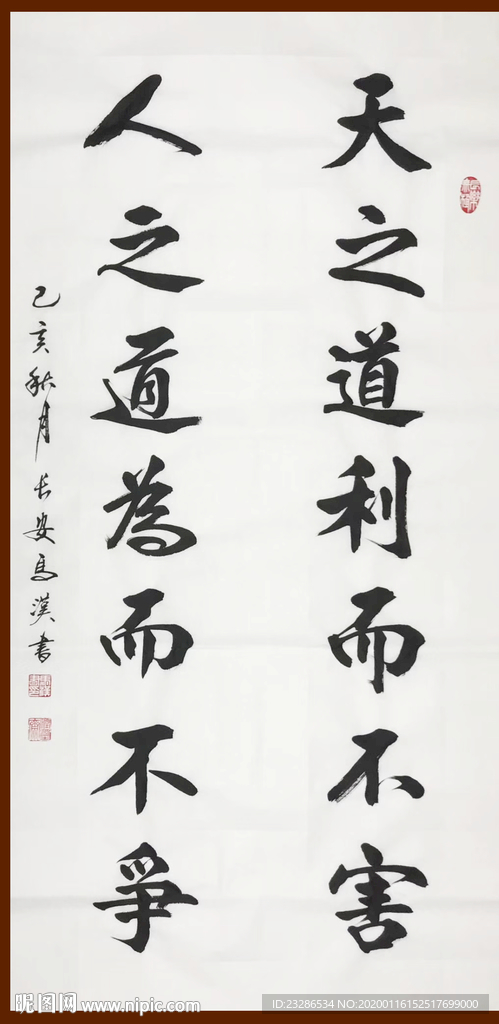 天之道利而不害
人之道為而不爭
己亥秋月長安馬漢書
昵图网 www.nipic.com
ID:23286534 NO:20200116152517699000